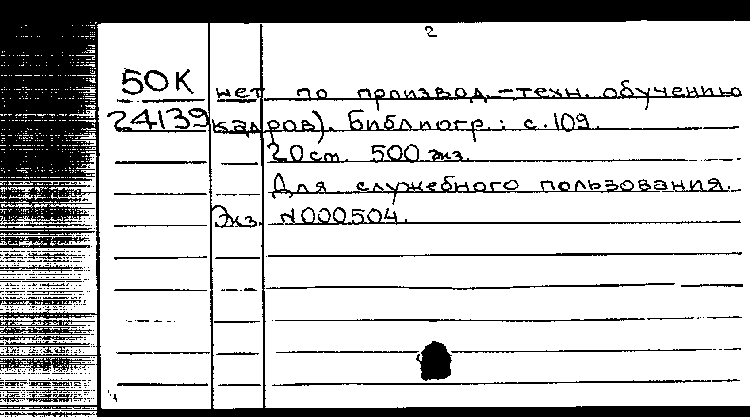 2
50К нет по производ.-техн. обучению
24139 кадров). Библиогр.: с.109.
20 см. 500 экз.
Для служебного пользования.
Экз. N000504.